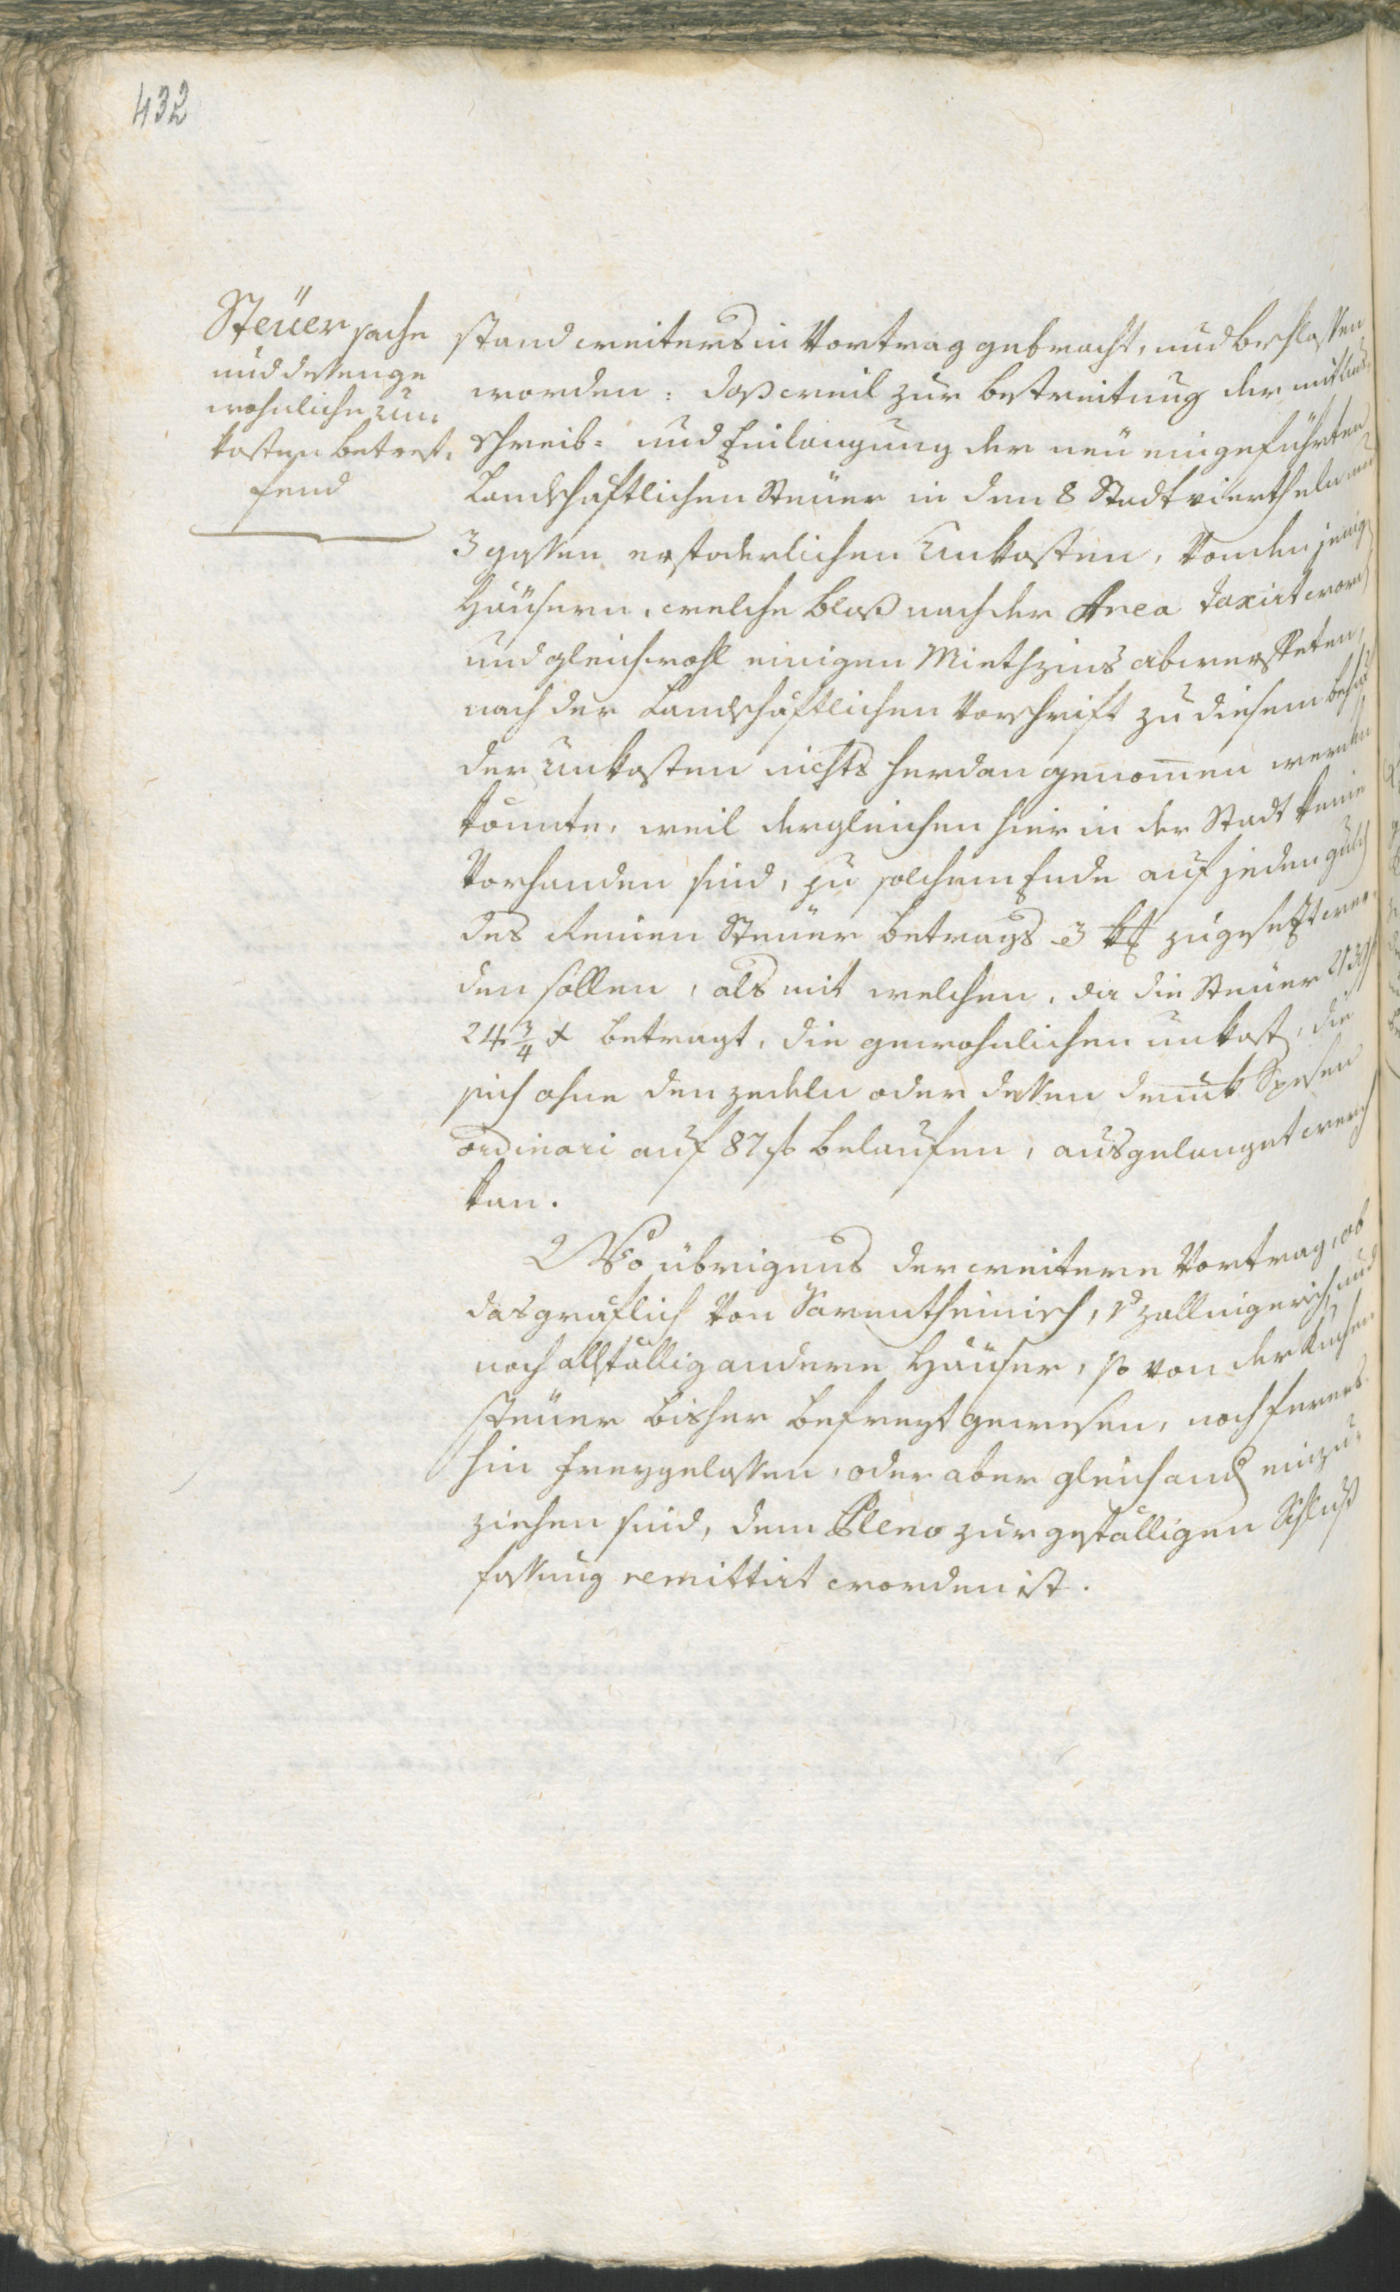 432
Steüer sache
und dessen ge
wohnliche Un-
kosten betref-
fend
stand weiters in Vortrag gebracht, und beschlossen
worden: daß weil zur bestreitung der mit
schreib- und Einlangung der neü eingeführten
Landschaftlichen Steüer in den 8 Stadtviertheln und
3 gassen erfoderlichen Unkosten, von den jenig
Häüsern, welche bloß nach der Area taxirt word
und gleichwohl einigen Miethzins abwerfteten,
nach der Landschaftlichen Vorschrift zu diesem behuf
der Unkosten nichts herdan genommen werden
könnte, weil dergleichen hier in der Stadt keine
Vorhanden sind, zu solchem Ende auf jeden guld
des Reinen Steüer betrags 3 zugesetzt wer-
den sollen, als mit welchen, da die Steüer
24 3/4 x betragt, die gewohnlichen unkost, die
sich ohne den zedeln oder dessen druck Spesen
ordinari auf 87 f belaufen, ausgelanget werd
kan.
Wo übrigens der weitere Vortrag, ob
das gräflich von Sarentheinisch, v zallingerisch und
noch allfällig andere Häüser, so von der Kuchen
steüer bisher befreyt gewesen, noch ferers
hin freygelassen, oder aber gleich and einzu-
ziehen sind, dem Pleno zur gefälligen Schluß
fassung remittirt worden ist.